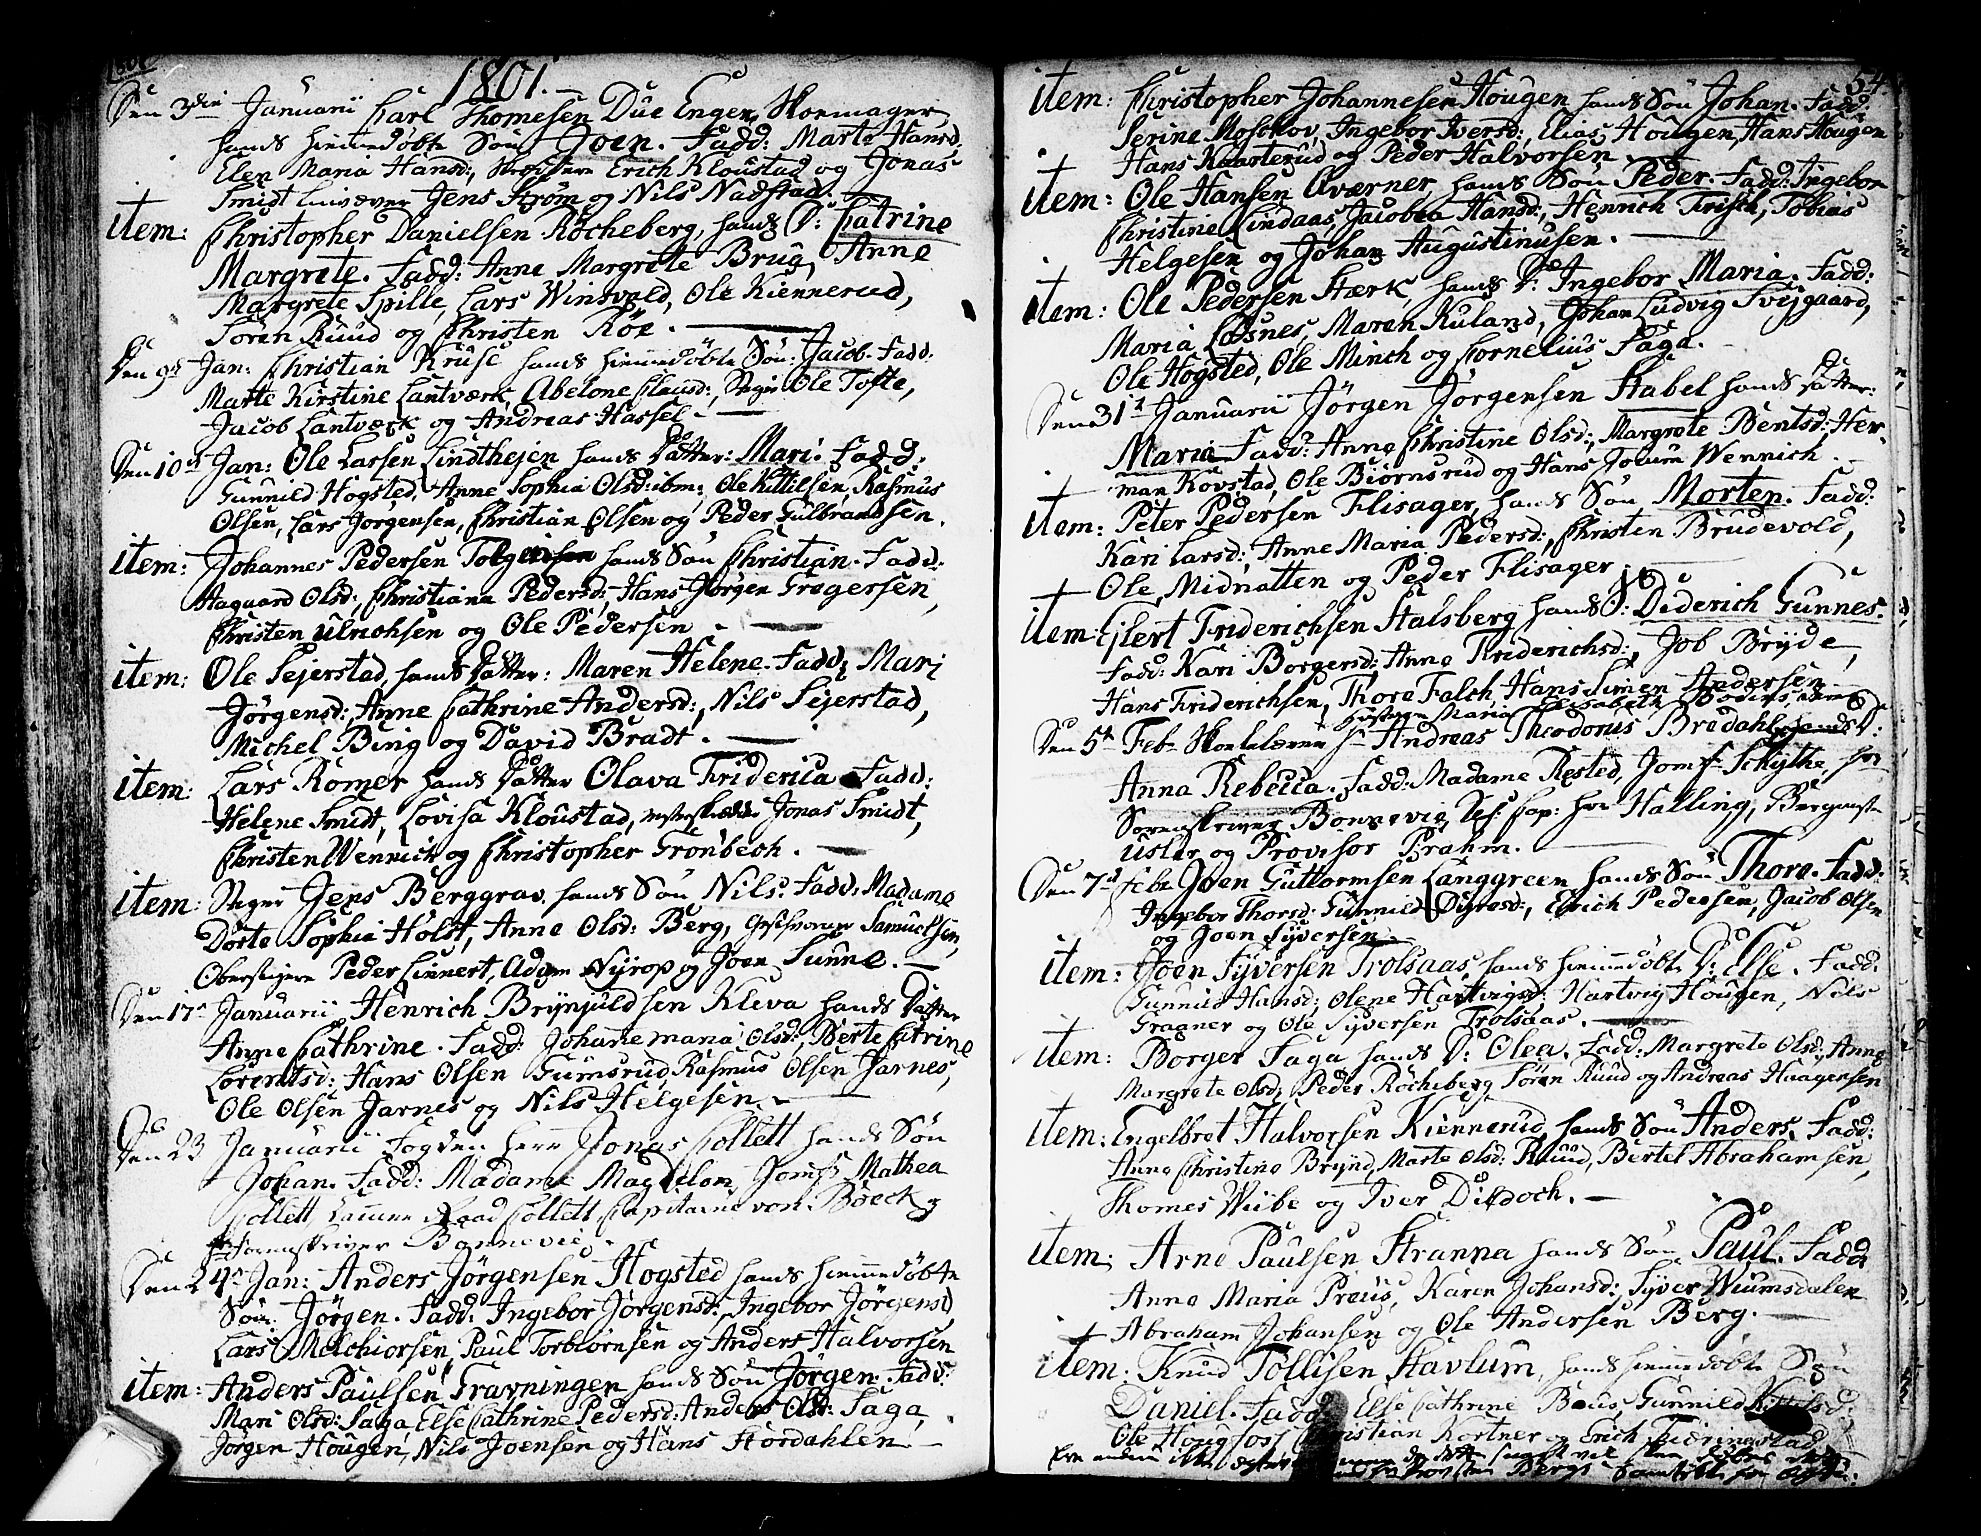 1801.
Den 3die Januarii Carl Thomesen Due Enger, Skomager
hands hiemedøbte Søn Joen. Fadd: Marte Hansd:
Elen Maria Hansd:, Erich Kloustad og Jonas
Smidt Jens Strøm og Nils Nadstad.
item: Christopher Danielsen Røcheberg, hands D: Catrine
Margrete. Fadd: Anne Margrete Brug, Anne
Margrete Spille, Lars Winsvold, Ole Kiennerud,
Søren Ruud og Christen Röe.
Den 9de Jan: Christian Kruse hands hiemedøbte Søn: Jacob. Fadd:
Marte Kirstine Lantværk, Abelone Clausd:, Ole Tofte,
Jacob Lantværk og Andreas Hassel.
Den 10de Jan: Ole Larsen Lindthejen hands Datter: Mari. Fadd.
Gunnild Hogsted, Anne Sophia Olsd: ibm:, Ole Kittilsen, Rasmus
Olsen, Lars Jørgensen, Christian Olsen og Peder Gulbrandsen.
item: Johannes Pedersen hands Søn Christian. Fadd:
Aagaard Olsd:, Christiana Pedersd:, Hans Jørgen Gregersen,
Christen Ulrichsen og Ole Pedersen.
item: Ole Sejerstad, hands Datter: Maren Helene. Fadd: Mari
Jørgensd:, Anne Cathrine Andersd:, Nils Sejerstad,
Michel Bing og David Bradt.
item: Lars Romer hands Datter Olava Friderica. Fadd:
Helene Smidt, Lovisa Kloustad, Jonas Smidt,
Christen Wennich og Christopher Grønbech.
item: Stiger Jens Berggrav hands Søn Nils. Fadd. Madame
Dorte Sophia Holst, Anne Olsd: Berg, Samuelsen,
Oberstigere Peder Linnert, Adam Nyrop og Joen Sunne.
Den 17de Januarii Henrich Brynjuldsen Kleva hands Datter
Anne Cathrine. Fadd: Johanne Maria Olsd:, Berte Catrine
Lorentsd: Hans Olsen Gumsrud, Rasmus Olsen Jarnes,
Ole Olsen Jarnes og Nils Helgesen.
Den 23 Januarii Fogden Herr Jonas Collett hands Søn
Johan. Fadd: Madame Magdelon, Jomf. Mathea
Collett, Collett, Capitaine von Boeck og
Sorenskriver Bonnevie.
Den 24de Jan: Anders Jørgensen Hogsted hands hiemedøbte
Søn: Jørgen. Fadd: Ingebor Jørgensd:, Ingebor Jørgensd,
Lars Melchiorsen, Paul Torbiørnsen og Anders Halvorsen
item: Anders Paulsen Gravningen hands Søn Jørgen. Fadd:
Mari Olsd: Saga, Else Cathrine Pedersd: Anders Olss: Saga,
Jørgen Hougen, Nils Joensen og Hans Hordahlen.
54
item: Christopher Johannesen Hougen hands Søn Johan. Fadd:
Serine Moschov, Ingebor Iversd:, Elias Hougen, Hans Hougen
Hans Knarterud og Peder Halvorsen.
item: Ole Hansen Qværner, hands Søn Peder. Fadd: Ingebor
Christine Lindaas, Jacobea Hansd:, Henrich Frisch, Tobias
Helgesen og Johan Augustinusen.
item: Ole Pedersen Stærk, hands D: Ingebor Maria. Fadd:
Maria Losnes, Maren Ruland, Johan Ludvig Svejgaard,
Ole Hogsted, Ole Minch og Cornelius Saga.
Den 31te Januarii Jørgen Jørgensen Stabel hands Datter:
Maria. Fadd: Anne Christine Olsd:, Margrete Bentsd:, Her-
man Kovstad, Ole Biørnsrud og Hans Jocum Wennich.
item: Peter Pedersen Flisager, hands Søn Morten. Fadd:
Kari Larsd:, Anne Maria Pedersd:, Christen Brudevold,
Ole Midnatten og Peder Flisager.
item: Ejlert Friderichsen Halsberg hands S: Diderich Gunnes.
Fadd: Kari Borgersd:, Anne Friderichsd:, Job Bryde,
Hans Friderichsen, Thore Falch, Hans Simen Andersen
Den 5te Febr. Andreas Theodorus Bredahl, hands D:
hustrue Maria Elisabeth
Anna Rebecca. Fadd: Madame Rested, Jomf. Schythe, Hr
Sorenskriver Bonnevie, Hr Halling,
Uslar og Provisor Brahm.
Den 7de Febr. Joen Guttormsen Langgreen hands Søn Thore. Fadd:
Ingebor Thorsd: Gunnild Erich Pedersen, Jacob Olsen
og Joen Syversen.
item: Joen Syversen Trolsaas, hands hiemedøbte D: Else. Fadd:
Gunnild Hansd:, Olene Hartvigsd: Hartvig Hougen, Nils
Graaner og Ole Syversen Trolsaas.
item: Borger Saga hands D: Olea. Fadd: Margrete Olsd:, Anne
Margrete Olsd:, Peder Røcheberg, Søren Ruud og Andreas Haagensen
item: Engelbret Halvorsen Kiennerud, hands Søn Anders. Fadd:
Anne Christine Brynd, Marte Olsd: Ruud, Bertel Abrahamsen,
Thomes Wiibe og Iver Dildoch.
item: Arne Paulsen Stranna hands Søn Paul. Fadd
Anne Maria Preus, Karen Johansd: Syver Wiumsdalen
Abraham Johansen og Ole Andersen Berg.
item: Knud Tollisen Havlum, hands hiemedøbte Søn
Daniel. Fadd: Else Cathrine Gunnild
Ole Hougfoss, Christian Kortner og Erich